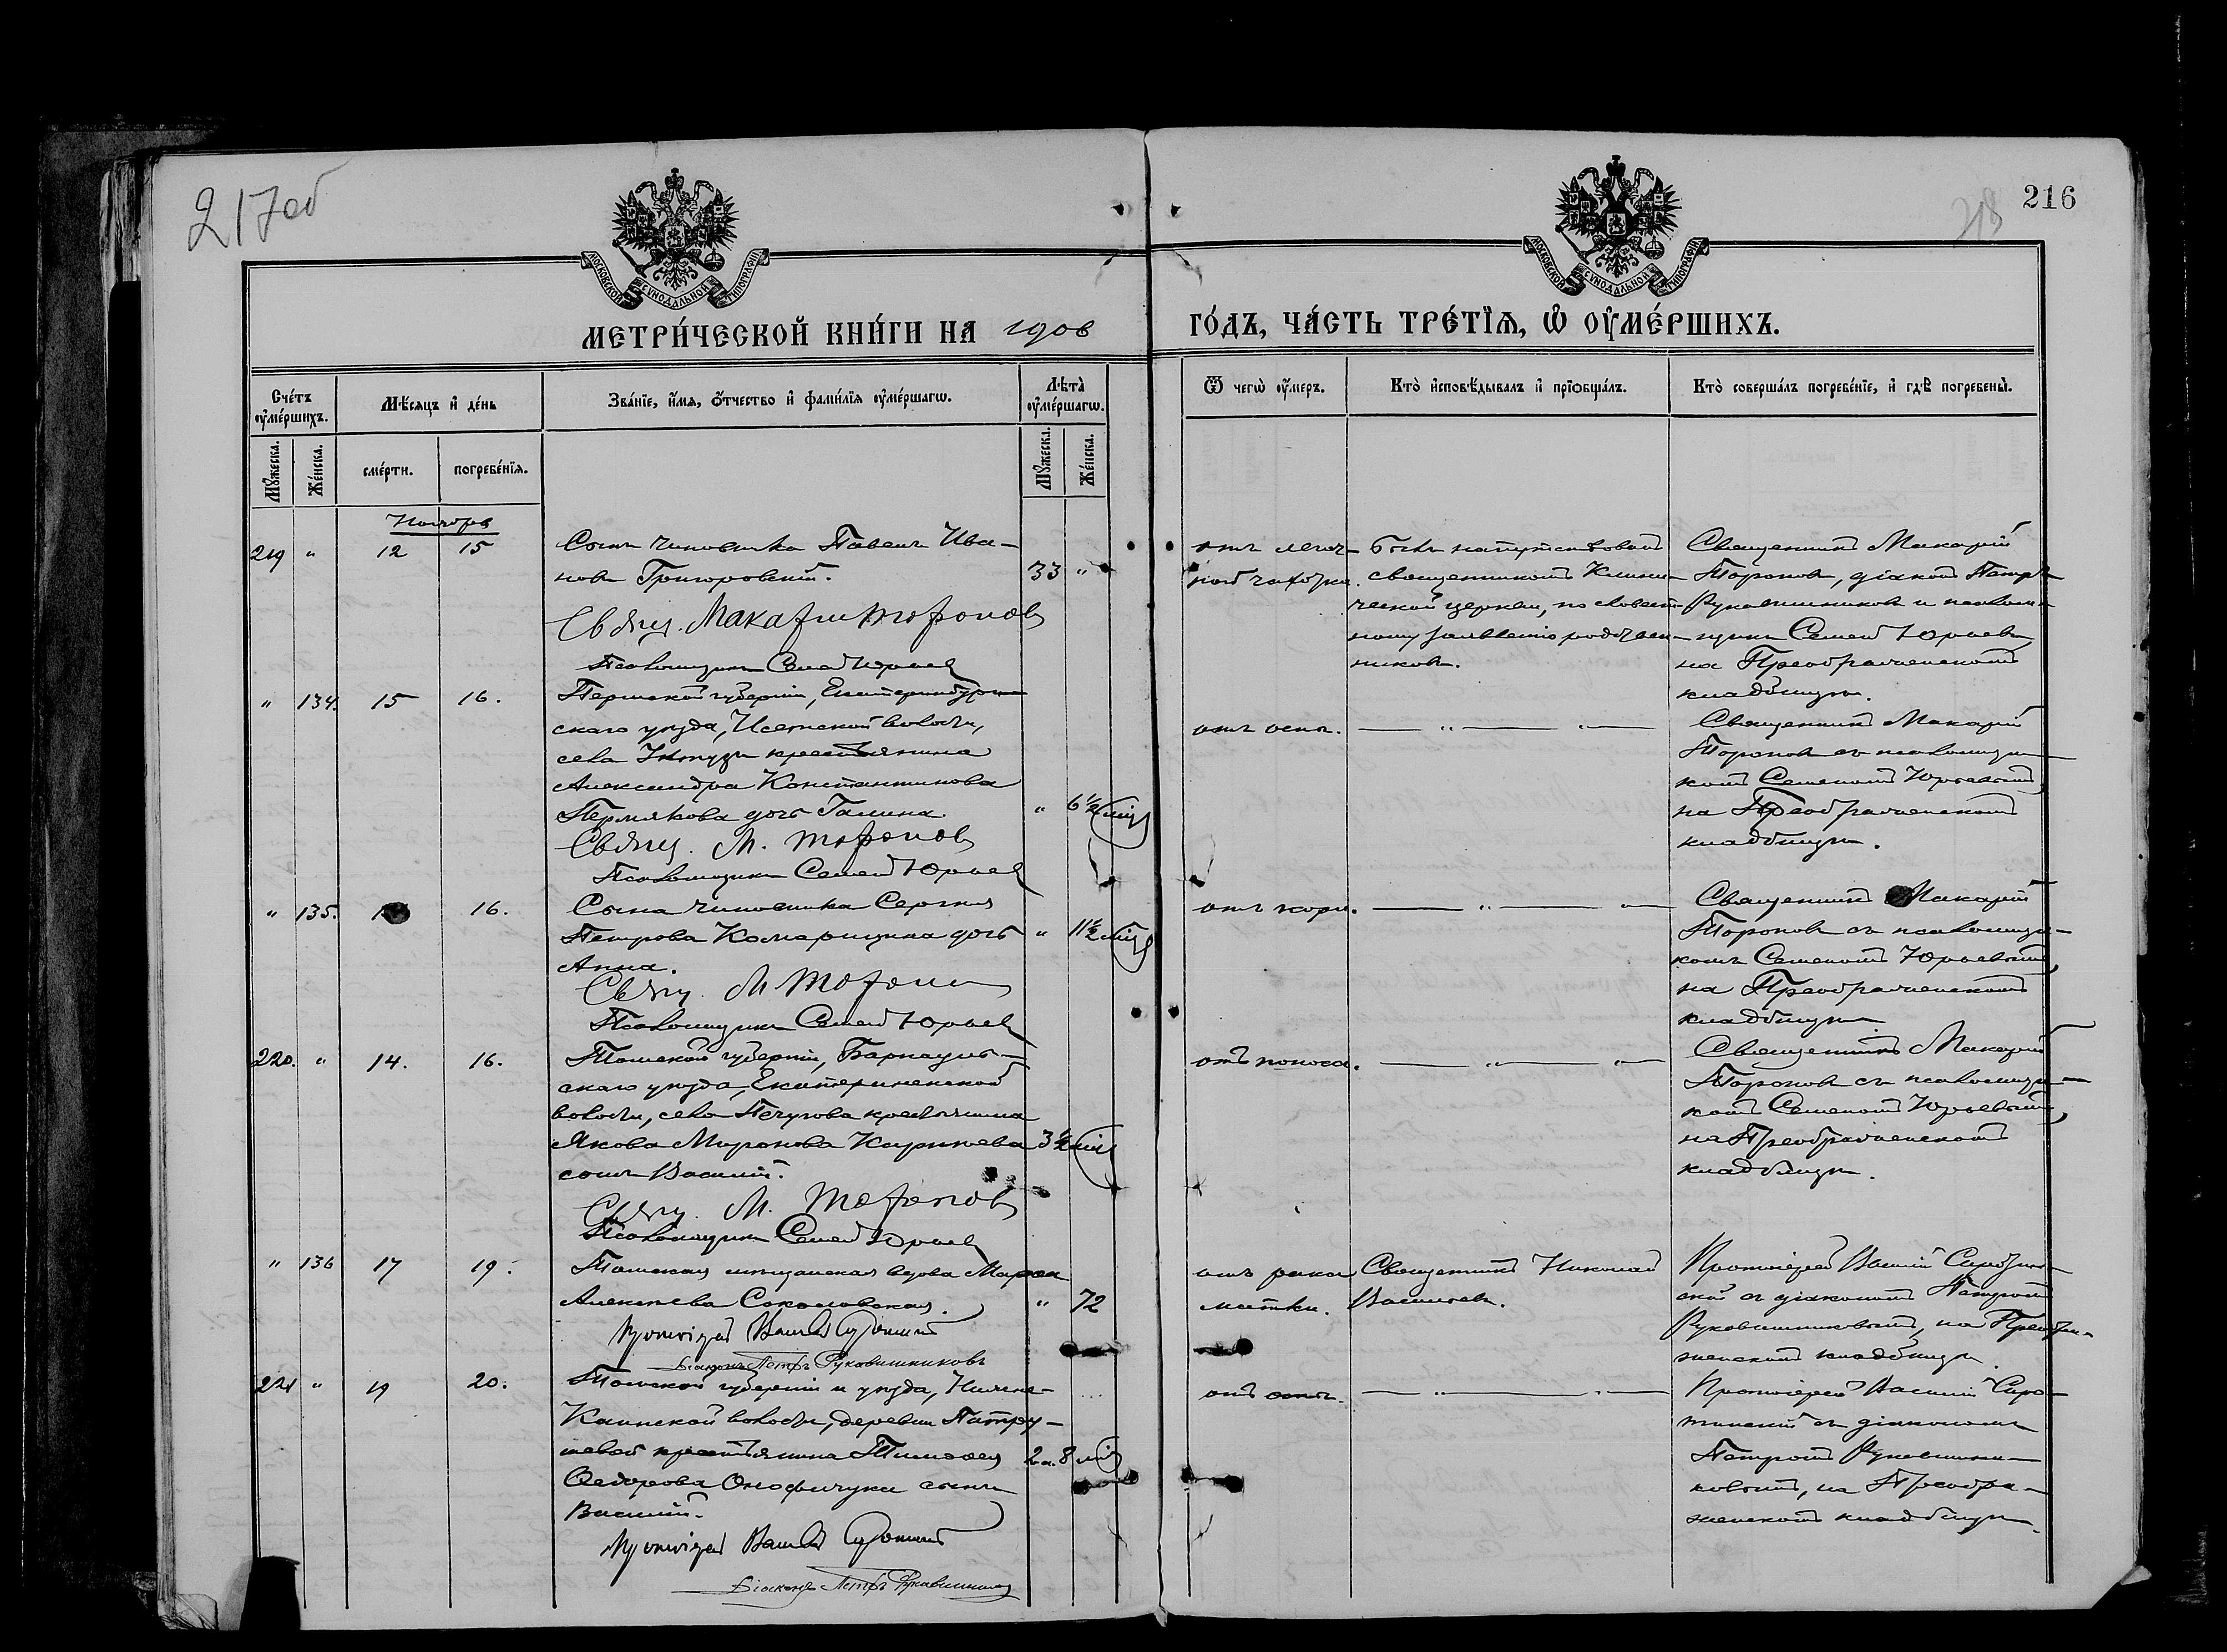 217об
216
218
МОСКОВСКОЙ СѴНОДАЛЬНОЙ ТИПОГРАФІИ
МОСКОВСКОЙ СѴНОДАЛЬНОЙ ТИПОГРАФІИ
МЕТРИ́ЧЕСКОЙ КНИ́ГИ НА 1906 ГО́ДЪ, ЧА́СТЬ ТРЕ́ТІѦ, Ѡ҆ ОУ҆МЕ́РШИХЪ.
Сче́тъ оу҆ме́ршихъ.
Мѣ́сяцъ и҆ де́нь
Зва́нїе, и҆́мя, ѻ҆́тчество и҆ фами́лїя оу҆ме́ршагѡ.
Лѣта̀ оу҆ме́ршагѡ.
Ѿ чегѡ̀ оу҆́меръ.
Кто̀ и҆сповѣ́дывалъ и҆ прїобща́лъ.
Кто̀ соверша́лъ погребе́нїе, и҆ гдѣ̀ погребены̀.
Мꙋ́жеска.
Же́нска.
сме́рти.
погребе́нїя.
Мꙋ́жеска.
Же́нска.
Ноября
219 " 12 15
Сынъ чиновника Павелъ Ива-
новъ Григоровскій. 33 "
Священ. Макарій Торопов
Псаломщикъ Семенъ Юрьев
отъ легоч-
ной чахотки.
Былъ напутствованъ
священникомъ Клини-
ческой церкви, по словест-
ному заявленію родствен-
никовъ.
Священникъ Макарій
Торопов, діаконъ Петръ
Рукавишниковъ и псалом-
щикъ Семенъ Юрьевъ,
на Преображенскомъ
кладбищѣ.
" 134. 15 16.
Пермской губерніи, Екатеринбург-
скаго уѣзда, Исетской волости,
села крестьянина
Александра Константинова
Пермякова дочь Галина " 6 1/2 мѣс
Священ. М. Торопов
Псаломщикъ Семенъ Юрьев
отъ оспы. — " — " —
Священникъ Макарій
Торопов съ псаломщи-
комъ Семеномъ Юрьевымъ,
на Преображенскомъ
кладбищѣ.
" 135. 16.
Сына чиновника Сергія
Петрова Комарицина дочь " 11 1/2 мѣс
Анна.
Священ. М Торопов
Псаломщикъ Семенъ Юрьев
отъ кори. — " — " —
Священникъ Макарій
Торопов съ псаломщи-
комъ Семеномъ Юрьевымъ,
на Преображенскомъ
кладбищѣ
220. " 14. 16.
Томской губерніи, Барнауль-
скаго уѣзда, Екатерининской
волости, села крестьянина
Якова Миронова 3 1/2 мѣс
сынъ Василій.
Священ. М. Торопов
Псаломщикъ Семенъ Юрьев
отъ поноса. — " — " —
Священникъ Макарій
Торопов съ псаломщи-
комъ Семеномъ Юрьевымъ,
на Преображенскомъ
кладбищѣ.
" 136 17 19.
Томская мѣщанская вдова
Алексѣева Соколовская. " 72
Протоіерей Василій Сиротинскій
Діаконъ Петръ Рукавишниковъ
отъ рака
матки.
Священникъ Николай
Васильевъ.
Протоіерей Василій Сиротин-
скій съ діакономъ Петромъ
Рукавишниковымъ, на Преобра-
женскомъ кладбищѣ.
221 " 19 20.
Томской губерніи и уѣзда, Нелюбин-
волости, деревни
крестьянина Тимофея 2 г. 8 мѣс
Федорова сынъ
Василій.
Протоіерей Василій Сиротинскій
Діаконъ Петръ Рукавишников
отъ оспы. — " — " —
Протоіерей Василій Сиро-
тинскій съ діакономъ
Петромъ Рукавишни-
ковымъ, на Преобра-
женскомъ кладбищѣ.